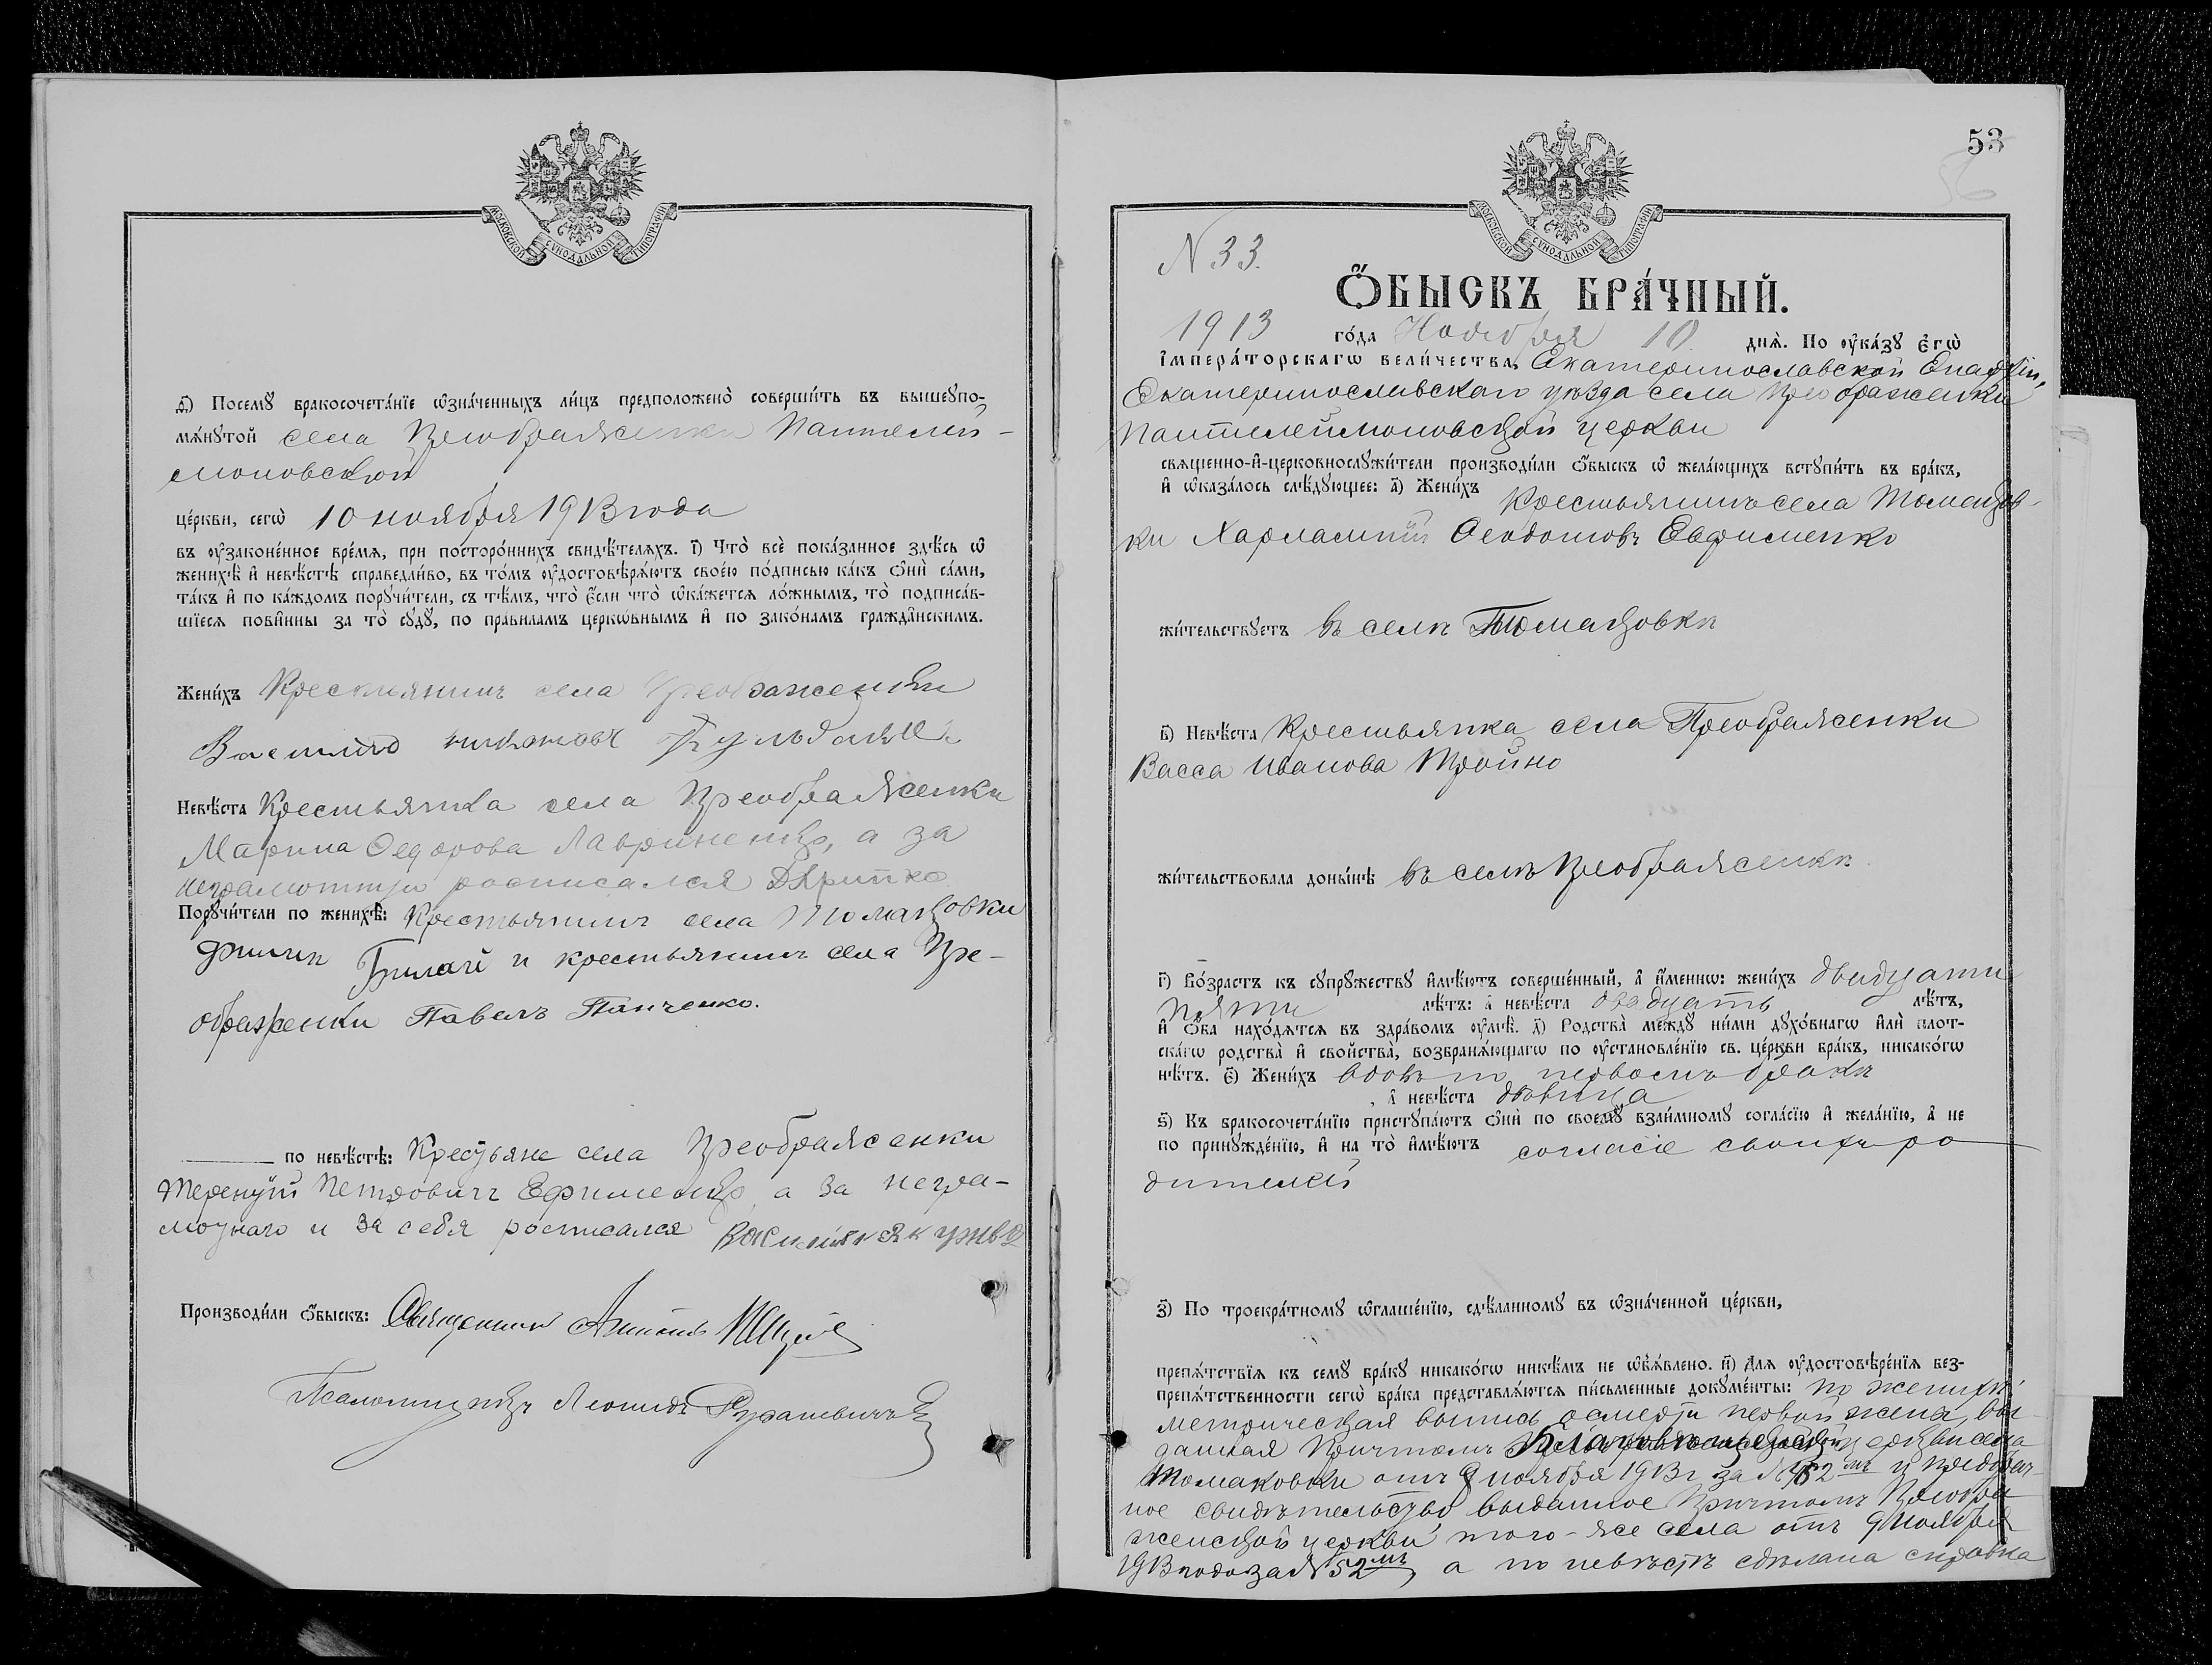 МОСКОВСКОЙ СѴНОДАЛЬНОЙ ТИПОГРАФІИ
ѳ҃) Посемꙋ̀ бракосочета́нїе ѡ҆зна́ченныхъ ли́цъ предположено̀ соверши́ть въ вышеꙋпо-
мѧ́нꙋтой села Преображенки Пантелей-
моновской
це́ркви, сегѡ̀ 10 ноября 1913 года
въ ᲂу҆законе́нное вре́мѧ, при посторо́ннихъ свидѣ́телѧхъ. і҃) Что̀ всѐ пока́занное здѣ́сь ѡ҆
женихѣ̀ и҆ невѣ́стѣ справедли́во, въ то́мъ ᲂу҆достовѣрѧ́ютъ свое́ю по́дписью ка́къ ѻ҆нѝ са́ми,
та́къ и҆ по ка́ждомъ порꙋчи́тели, съ тѣ́мъ, что̀ є҆́сли что̀ ѡ҆ка́жетсѧ ло́жнымъ, то̀ подписа́в-
шїесѧ пови́нны за то̀ сꙋдꙋ̀, по пра́виламъ церко́внымъ и҆ по зако́намъ гражда́нскимъ.
Жени́хъ Крестьянинъ села Преображенки
Невѣ́ста Крестьянка села Преображенки
Марина Ѳедорова Лавриненко, а за
неграмотную росписался
Порꙋчи́тели по женихѣ̀: Крестьянинъ села Томаковки
Билай и крестьянинъ села Пре-
ображенки Павелъ Панченко.
по невѣ́стѣ: Крестьяне села Преображенки
Терентій Петровичъ Ефименко, а за негра-
мотнаго и за себя росписался
Производи́ли ѻ҆́быскъ: Священникъ Антоній
Псаломщикъ Леонидъ
53
56
МОСКОВСКОЙ СѴНОДАЛЬНОЙ ТИПОГРАФІИ
N 33.
Ѻ҆́БЫСКЪ БРА́ЧНЫЙ.
1913 го́да Ноября 10 днѧ̀. По ᲂу҆ка́зꙋ є҆гѡ̀
і҆мпера́торскагѡ вели́чества, Екатеринославской Епархіи,
Екатеринославскаго уѣзда села Преображенки
Пантелеймоновской церкви
свѧще́нно-и҆-церковнослꙋжи́тели производи́ли ѻ҆́быскъ ѡ҆ жела́ющихъ встꙋпи́ть въ бра́къ,
и҆ ѡ҆каза́лось слѣ́дꙋющее: а҃) Жени́хъ Крестьянинъ села Томаков-
ки Харлампій Ѳеодотовъ Евфименко
жи́тельствꙋетъ въ селѣ Томаковкѣ
в҃) Невѣ́ста Крестьянка села Преображенки
Васса Иванова Тройно
жи́тельствовала донынѣ въ селѣ Преображенкѣ.
г҃) Во́зрастъ къ сꙋпрꙋ́жествꙋ и҆мѣ́ютъ соверше́нный, а҆ и҆́меннѡ: жени́хъ двадцати
пяти лѣ́тъ: а҆ невѣ́ста двадцать лѣ́тъ,
и҆ ѻ҆́ба нахо́дѧтсѧ въ здра́вомъ ᲂу҆мѣ̀. д҃) Родства̀ междꙋ̀ ни́ми дꙋхо́внагѡ и҆лѝ плот-
ска́гѡ родства̀ и҆ свойства̀, возбранѧ́ющагѡ по ᲂу҆становле́нїю св. це́ркви бра́къ, никако́гѡ
нѣ́тъ. є҃) Жени́хъ вдовъ по первомъ бракѣ
, а҆ невѣ́ста дѣвица
ѕ҃) Къ бракосочета́нїю пристꙋпа́ютъ ѻ҆нѝ по своемꙋ̀ взаи́мномꙋ согла́сїю и҆ жела́нїю, а҆ не
по принꙋжде́нїю, и҆ на то̀ и҆мѣ́ютъ согласіе своихъ ро
дителей
з҃) По троекра́тномꙋ ѡ҆глаше́нїю, сдѣ́ланномꙋ въ ѡ҆зна́ченной це́ркви,
препѧ́тствїѧ къ семꙋ̀ бра́кꙋ никако́гѡ никѣ́мъ не ѡ҆б̾ѧ́влено. и҃) Длѧ ᲂу҆достовѣре́нїѧ без-
препѧ́тственности сегѡ̀ бра́ка представлѧ́ютсѧ пи́сьменные докꙋме́нты: по женихѣ
метрическая выпись о смерти первой жены, вы-
данная Причтомъ Благовѣщенской церкви села
Томаковки отъ 9 ноября 1913 г за № 52мъ и предбрач-
ное свидѣтельство выданное Причтомъ Преобра
женской церкви того-же села отъ 9 Ноября
1913 года за № 52мъ, а по невѣстѣ сдѣлана справка